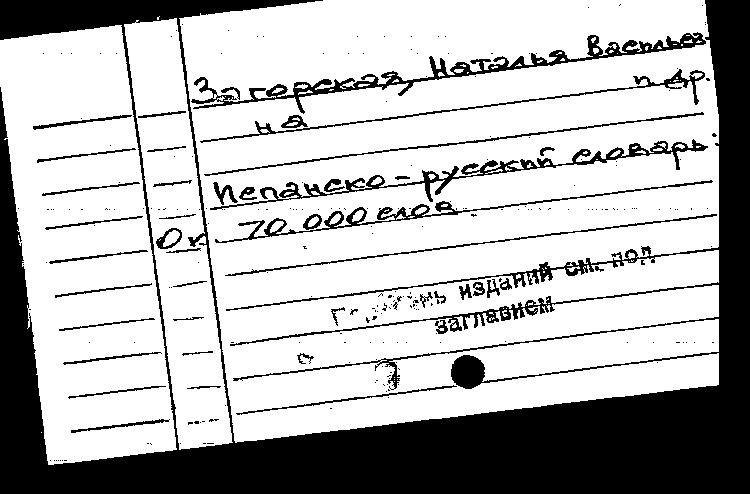 Загорская, Наталья Васильев-
на и др.
Испанско-русский словарь:
Ок. 70.000 слов.
Перечень изданий см. под
заглавием